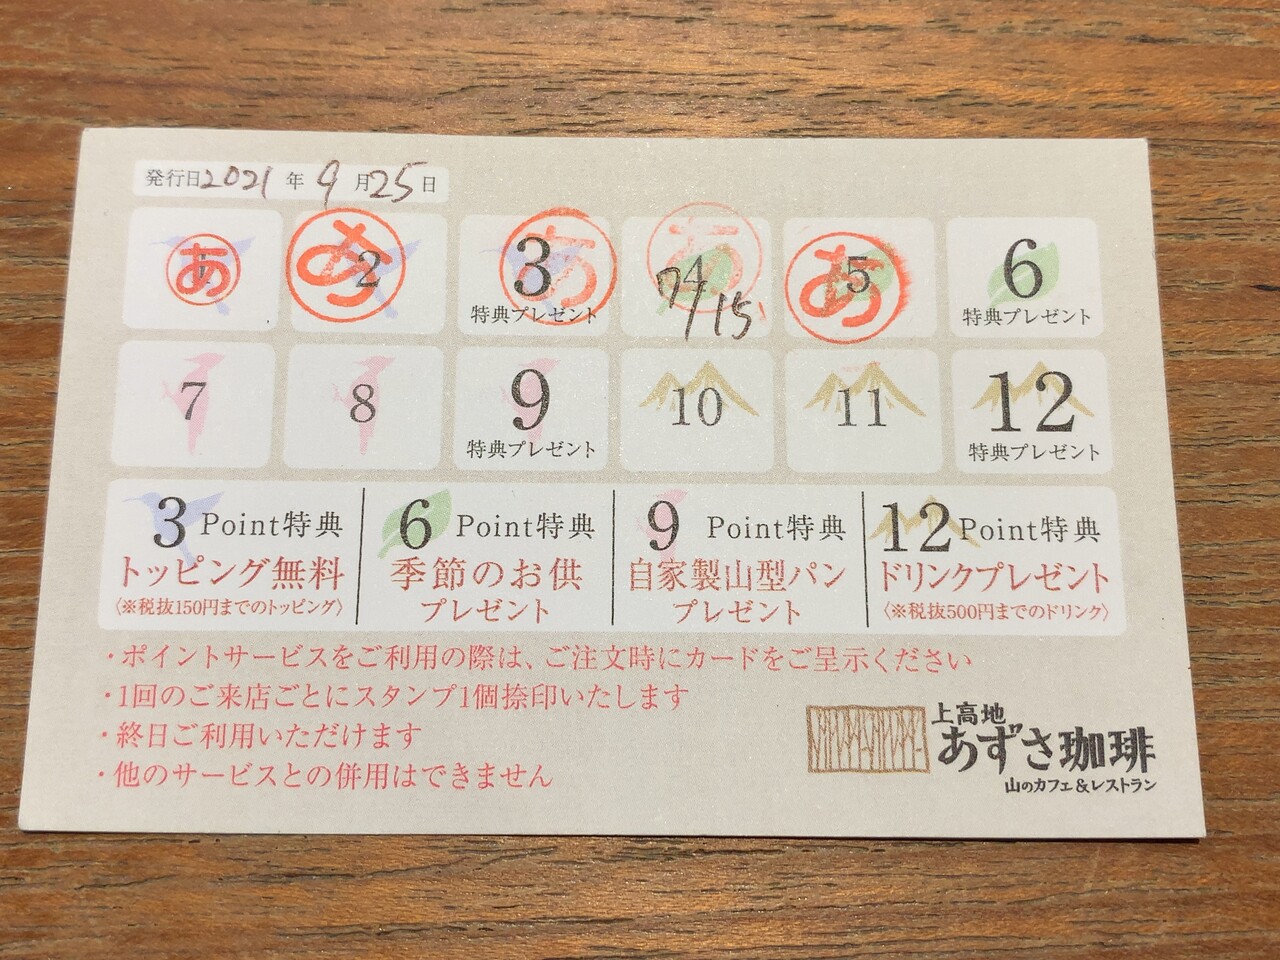 発行日2021年9月25日
あ 1
あ 2
あ 3 特典プレゼント
あ 4 7/15
あ 5
6 特典プレゼント
7
8
9 特典プレゼント
10
11
12 特典プレゼント
3 Point特典
トッピング無料
〈※税抜150円までのトッピング〉
6 Point特典
季節のお供
プレゼント
9 Point特典
自家製山型パン
プレゼント
12 Point特典
ドリンクプレゼント
〈※税抜500円までのドリンク〉
・ポイントサービスをご利用の際は、ご注文時にカードをご呈示ください
・1回のご来店ごとにスタンプ1個捺印いたします
・終日ご利用いただけます
・他のサービスとの併用はできません
上高地
あずさ珈琲
山のカフェ&レストラン